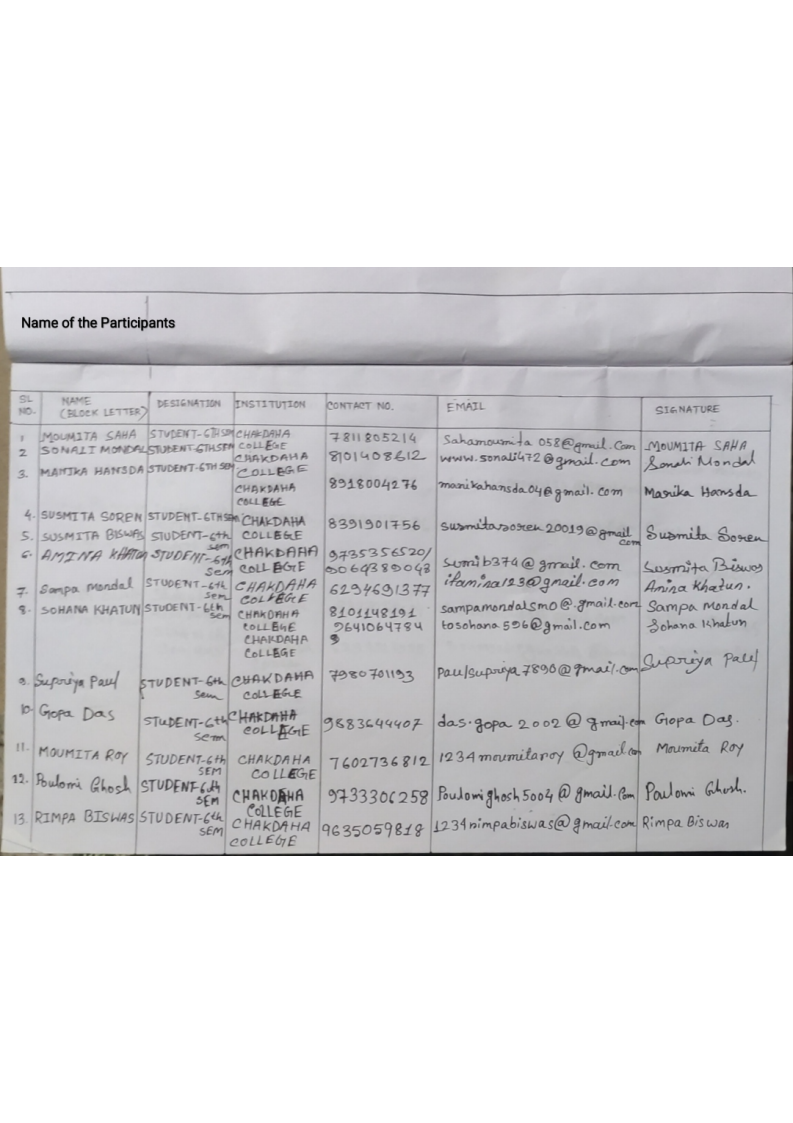 Name of the Participants
SL NO. NAME (BLOCK LETTER) DESIGNATION INSTITUTION CONTACT NO. EMAIL SIGNATURE
1 MOUMITA SAHA STUDENT-6TH SEM CHAKDAHA COLLEGE 7811805214 Sahamoumita058@gmail.com MOUMITA SAHA
2 SONALI MONDAL STUDENT-6THSEM CHAKDAHA COLLEGE 8101408612 www.sonali472@gmail.com Sonali Mondal
3. MANIKA HANSDA STUDENT-6TH SEM CHAKDAHA COLLEGE 8918004276 manikahansda04@gmail.com Manika Hansda
4. SUSMITA SOREN STUDENT-6THSEM CHAKDAHA COLLEGE 8391901756 susmitasoren20019@gmail.com Susmita Soren
5. SUSMITA BISWAS STUDENT-6th sem CHAKDAHA COLLEGE 9735356520/ sumib374@gmail.com Susmita Biswas
6. AMINA KHATUN STUDENT-6th Sem CHAKDAHA COLLEGE 9064389043 itamina123@gmail.com Amina Khatun.
7. Sampa Mondal STUDENT-6th sem CHAKDAHA COLLEGE 6294691377 sampamondalsm0@.gmail.com Sampa Mondal
8. SOHANA KHATUN STUDENT-6th sem CHAKDAHA COLLEGE 8101148191 9641064784 tosohana596@gmail.com Sohana Khatun
9. Supriya Paul STUDENT-6th sem CHAKDAHA COLLEGE 7980701193 paulsupriya7890@gmail.com Supriya Paul
10. Gopa Das STUDENT-6th sem CHAKDAHA COLLEGE 9883644407 das.gopa2002@gmail.com Gopa Das.
11. MOUMITA ROY STUDENT-6th SEM CHAKDAHA COLLEGE 7602736812 1234moumitaroy@gmail.com Moumita Roy
12. Poulomi Ghosh STUDENT-6th SEM CHAKDAHA COLLEGE 9733306258 Poulomighosh5004@gmail.com Poulomi Ghosh.
13. RIMPA BISWAS STUDENT-6th SEM CHAKDAHA COLLEGE 9635059818 1234rimpabiswas@gmail.com Rimpa Biswas